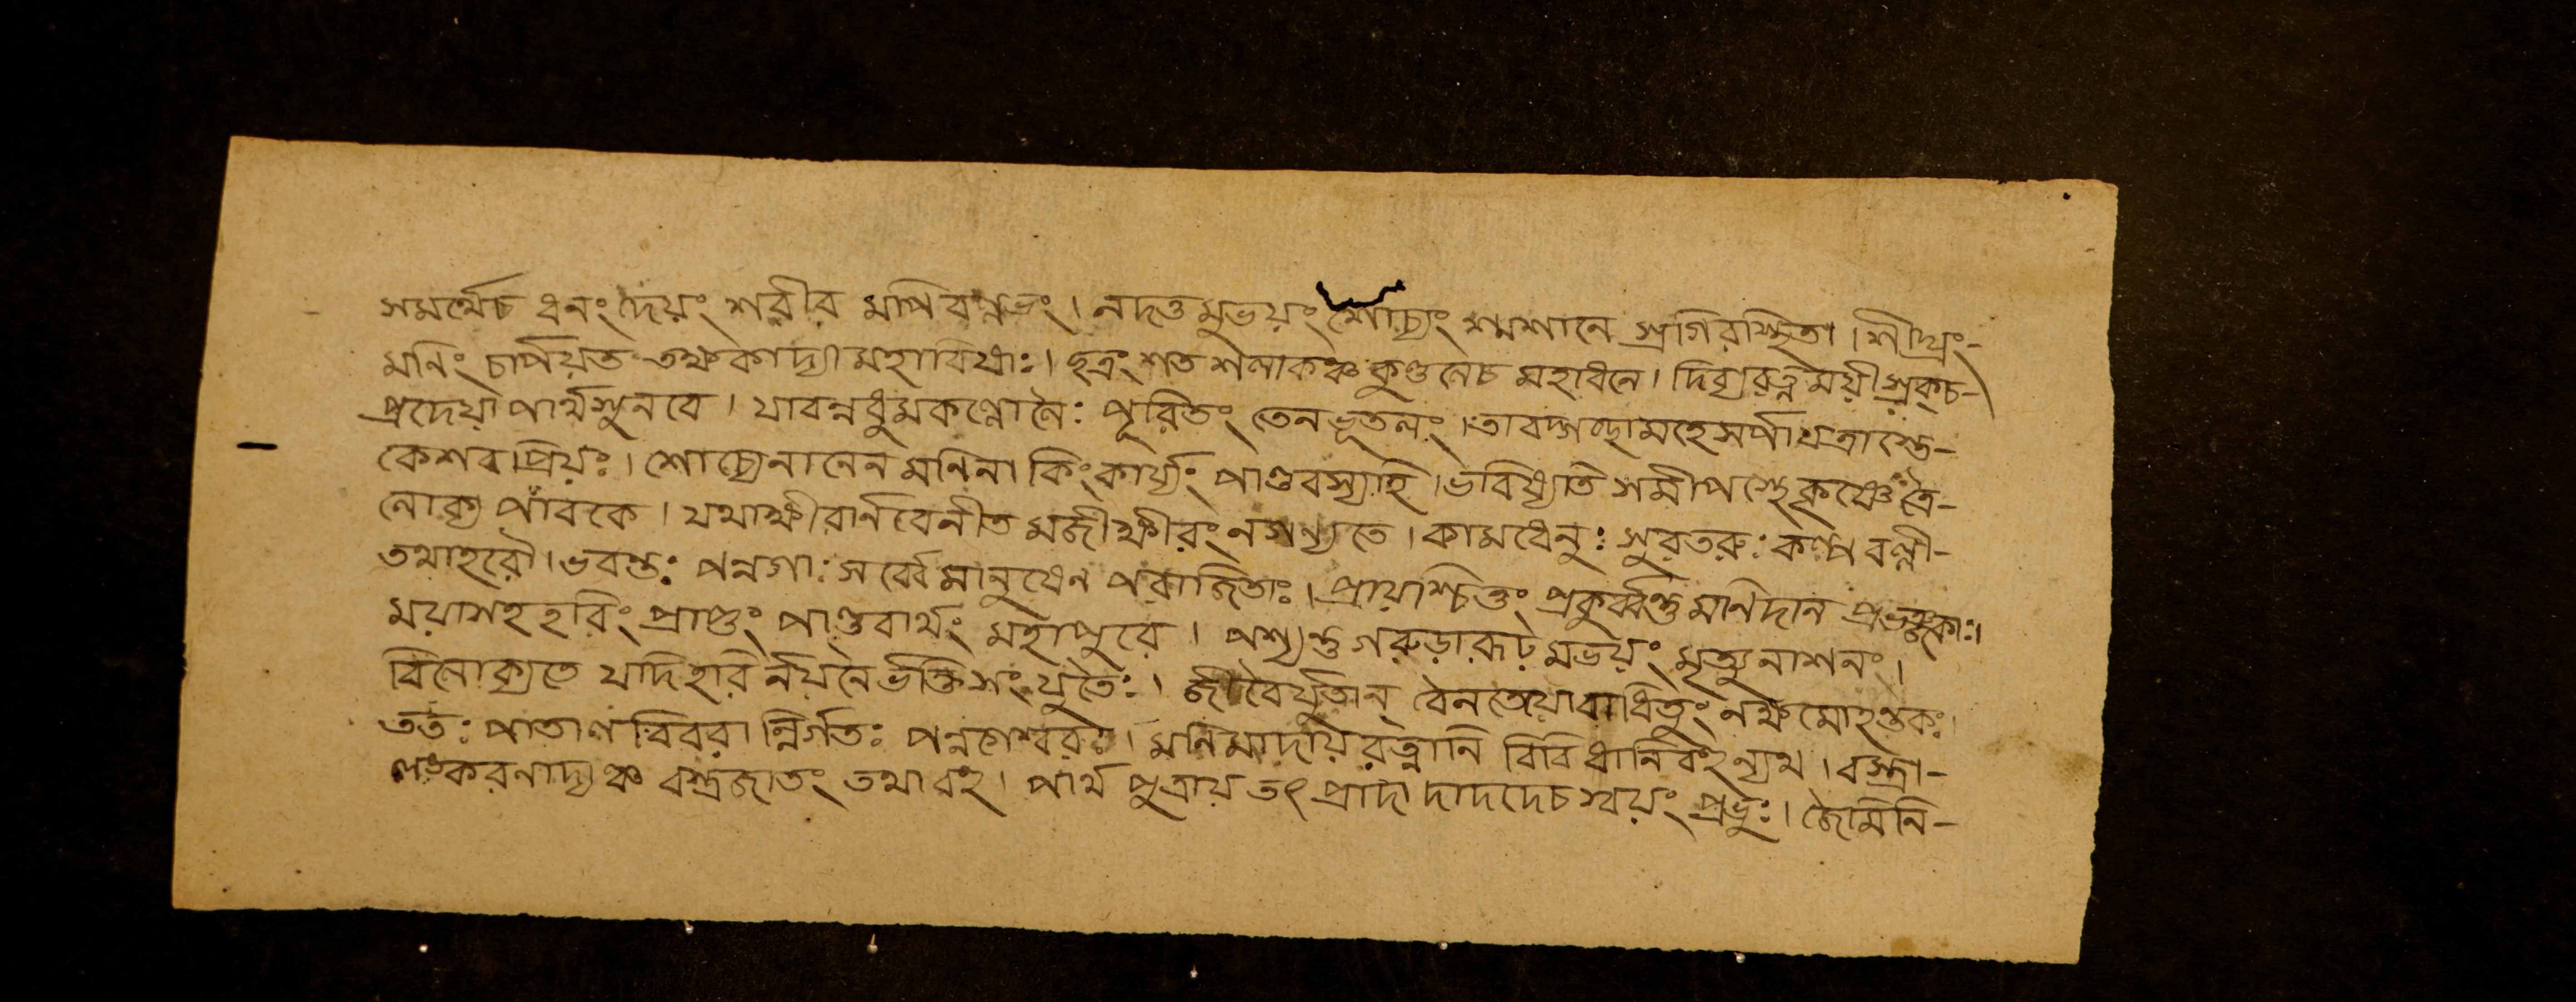 সমর্থেচ ধনং দেয়ং শরীর মপিবল্লভং । নদত্ত মুভয়ং শোচ্যং শ্মশানে স্রগিরস্থিতা । শীঘ্রং-
মনিং চার্পয়ত তক্ষকাদ্যা মহাবিষাঃ । ছত্রং শত শলাকঞ্চ কুণ্ডলেচ মহাধনে । দিব্যরত্ন ময়ী স্রক্চ-
প্রদেয়া পার্থসুনবে । যাবন্নধুমকল্লোলৈঃ পূরিতং তেন ভূতলং । তাবদ্গচ্ছামহে সর্পা যত্রাস্তে-
কেশব প্রিয়ঃ । শোচ্যেনানেন মনিনা কিং কার্য্যং পাণ্ডবস্যাহি । ভবিষ্যতি সমীপস্থে কৃষ্ণে ত্রৈ-
লোক্য পাবকে । যথাক্ষীরার্নবেনীত মজাক্ষীরং নগণ্যতে । কামধেনুঃ সুরতরুঃ কল্পবল্লী-
তথাহরৌ । ভবন্তঃ পন্নগাঃ সর্ব্বে মানুষেন পরাজিতাঃ । প্রায়শ্চিত্তং প্রকুর্ব্বন্তু মনিদান প্রভুঞ্জকাঃ ।
ময়াসহ হরিং প্রাপ্তুং পাণ্ডবার্থং মহাপুরে । পশ্যন্তু গরুড়ারূঢ় মভয়ং মৃত্যু নাশনং ।
বিলোক্যতে যদি হরি র্নয়নৈ র্ভক্তি সংযুতৈঃ । জীবৈর্যুতান্ বৈনতেয়ো বাধিতুং নক্ষমোহন্তকঃ ।
ততঃ পাতাল বিবরা ন্নির্গতঃ পন্নগেশ্বরঃ । মনিমাদায় রত্নানি বিবিধানিবহুন্যথ । বস্ত্রা-
লংকরনাদ্যঞ্চ বস্ত্রজাতং তথাবহু । পার্থ পুত্রায় তৎ প্রাদা দাদদেচ স্বয়ং প্রভুঃ । জৈমিনি-